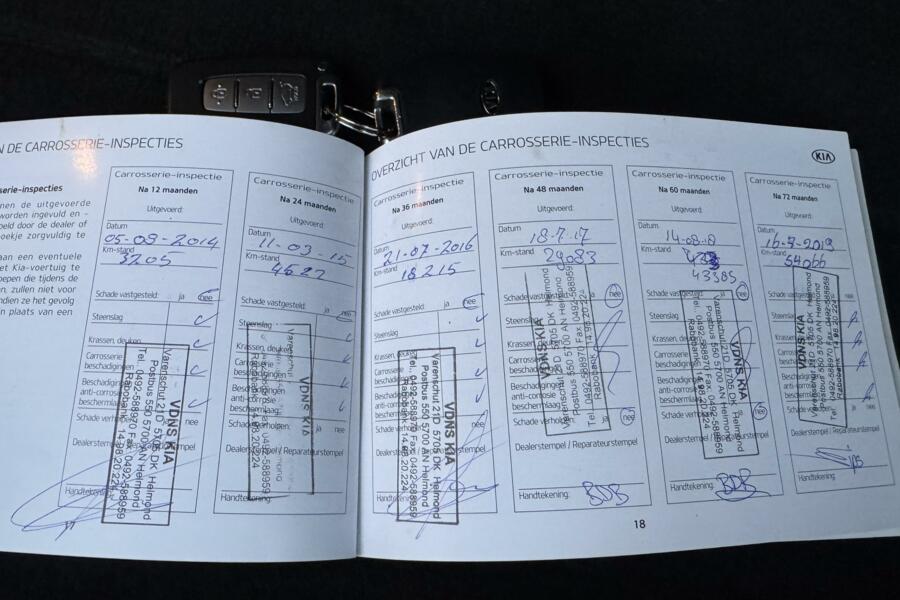 N DE CARROSSERIE-INSPECTIES
serie-inspecties
nen de uitgevoerde
worden ingevuld en -
peld door de dealer of
oekje zorgvuldig te
aan een eventuele
et Kia-voertuig te
epen die tijdens de
n, zullen niet voor
ndien ze het gevolg
n plaats van een
Carrosserie-inspectie
Na 12 maanden
Uitgevoerd:
Datum
05-09-2014
Km-stand
3205
Schade vastgesteld: ja nee
Steenslag
Krassen, deuken
Carrosserie
beschadigingen
Beschadiging
anti-corrosie
beschermlaag
Schade verholpen
Dealerstempel
Handtekening
VDNS KIA
Varenschut 21D 5705 DK Helmond
Postbus 550 5700 AN Helmond
Tel. 0492-588970 Fax 0492-588959
17
Carrosserie-inspectie
Na 24 maanden
Uitgevoerd:
Datum
11-03-15
Km-stand
4627
Schade vastgesteld: ja
Steenslag
Schade verholpen: nee
Dealerstempel / Reparateurstempel
Handtekening:
VDNS KIA
OVERZICHT VAN DE CARROSSERIE-INSPECTIES
KIA
Carrosserie-inspectie
Na 36 maanden
Uitgevoerd:
Datum
21-07-2016
Km-stand
18215
Schade vastgesteld: ja nee
Steenslag
Krassen, deuken
Carrosserie
beschadigingen
Beschadiging
anti-corrosie
beschermlaag
Handtekening
VDNS KIA
Varenschut 21D 5705 DK Helmond
Postbus 550 5700 AN Helmond
Tel. 0492-588970 Fax 0492-588959
Rabobank 14.98.20.224
Carrosserie-inspectie
Na 48 maanden
Uitgevoerd:
Datum
18-7-17
Km-stand
29083
Schade vastgesteld nee
Steenslag
Krassen, deuken
Carrosserie
beschadigingen
Beschadigingen
anti-corrosie
beschermlaag
Schade verholpen: ja nee
Dealerstempel / Reparateurstempel
Handtekening:
BDB
VDNS KIA
Postbus 550 5700 AN Helmond
Carrosserie-inspectie
Na 60 maanden
Uitgevoerd:
Datum
14-08-18
Km-stand
43385
Schade vastgesteld: nee
Steenslag
Krassen, deuken
Carrosserie
beschadigingen
Beschadigingen
anti-corrosie
beschermlaag
Schade verholpen: nee
Dealerstempel / Reparateurstempel
Handtekening:
BDB
VDNS KIA
Varenschut 21D 5705 DK Helmond
Postbus 550 5700 AN Helmond
Tel. 0492-588970 Fax 0492-588959
Carrosserie-inspectie
Na 72 maanden
Uitgevoerd:
Datum
16-9-2019
Km-stand
54066
Schade vastgesteld: ja
Steenslag
Krassen, deuken
Carrosserie
beschadigingen
Beschadigingen
anti-corrosie
beschermlaag
Schade verholpen: ja nee
Dealerstempel / Reparateurstempel
Handtekening:
VDNS KIA
Postbus 550 5700 AN Helmond
18